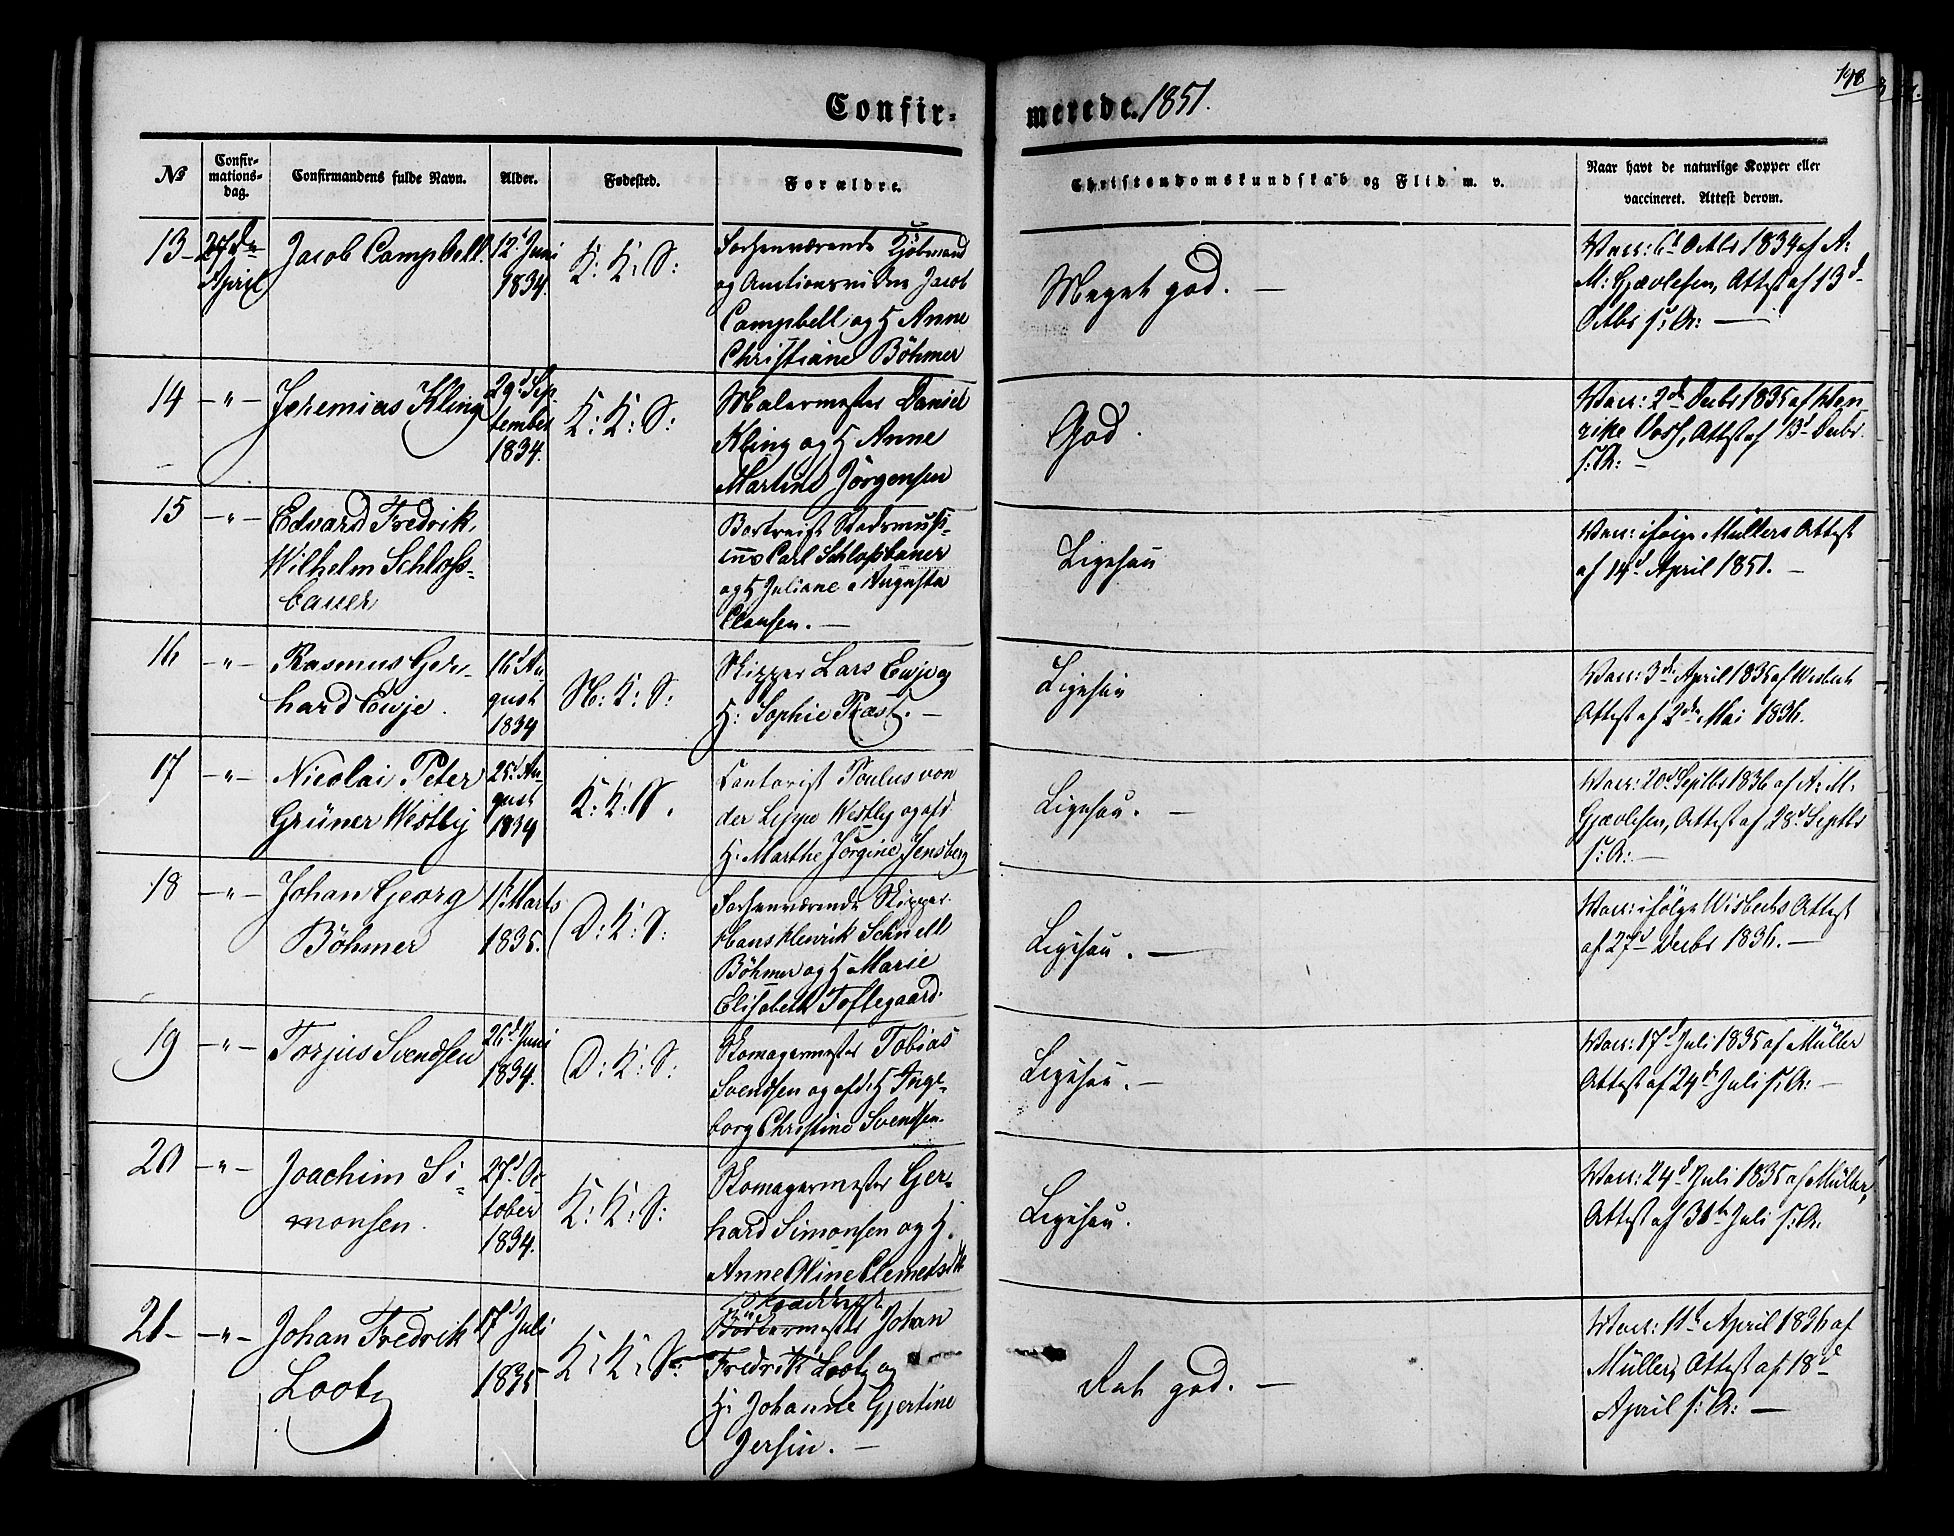 198
Confir-
merede. 1851.
No
Confir-
mations-
dag.
Confirmandens fulde Navn.
Alder.
Fødested.
Forældre.
Christendomskundskab og Flid m. v.
Naar havt de naturlige Kopper eller
vaccineret. Attest derom.
13
27de
April
Jacob Campbell.
12t Juni
1834.
K: K: S:
Forhenværende Kjøbmand
og Auctionsvidne Jacob
Campbell og H Anne
Christiane Böhmer
Meget god. —
Vacc: 6t Octbr 1834 af A:
M: Gjævlesen, Attest af 13d
Octbr s: A: —
14
-"-
Jeremias Kling
29d Sep-
tember
1834.
K: K: S:
Malermester Daniel
Kling og H Anne
Martine Jörgensen
God.
Vacc: 2de Decbr 1835 af Hen
rike Voss, Attest af 13d Decbr.
s: A: —
15
-"-
Edvard Fredrik
Wilhelm Schloss-
bauer
Bortreist Stadsmusi-
cus Carl Schlossbauer
og H Juliane Augusta
Clausen. —
Ligesaa
Vacc: ifølge Müllers Attest
af 14d April 1851. —
16
-"-
Rasmus Ger-
hard Ewje.
16d Au-
gust
1834
N: K: S:
Skipper Lars Ewje og
H: Sophie Rasch. —
Ligesaa
Vacc: 3de April 1835 af Wisbech
Attest af 2den Mai 1836.
17
-"-
Nicolai Peter
Grüner Westby
25d Au-
gust
1834
K: K: S.
Contorist Poulus von
der Lippe Westby og afd
H: Marthe Jörgine Jensberg
Ligesaa. —
Vacc: 20d Septbr 1836 af A: M.
Gjævlesen, Attest af 28d Septbr
s: A: —
18
-"-
Johan Georg
Böhmer
Marts
1835.
D: K: S:
Forhenværende Skipper
Hans Henrik Schnell
Böhmer og H Marie
Elisabeth Toftegaard.
Ligesaa. —
Vacc: ifölge Wisbechs Attest
af 27d Decbr 1836. —
19
-"-
Torjus Svendsen
26d Juni
1834.
D: K: S:
Skomagermester Tobias
Svendsen og afd: H Inge-
borg Christine Svendsen.
Ligesaa. —
Vacc: 17d Juli 1835 af Müller
Attest af 24d Juli s: A: —
20
-"-
Joachim Si-
monsen.
27d Oc-
tober
1834.
K: K: S:
Skomagermester Ger-
hard Simonsen og H.
Anne Oline Clemetsdtr
Ligesaa.
Vacc: 24d Juli 1835 af Müller,
Attest af 31te Juli s: A.
21
-"-
Johan Fredrik
Lootz
17d Juli
1835
K: K: S:
Johan
Fredrik Lootz og
H. Johanne Gjertine
Jersin. —
Ret god. —
Vacc: 11te April 1836 af
Müller, Attest af 18d
April s: A: —